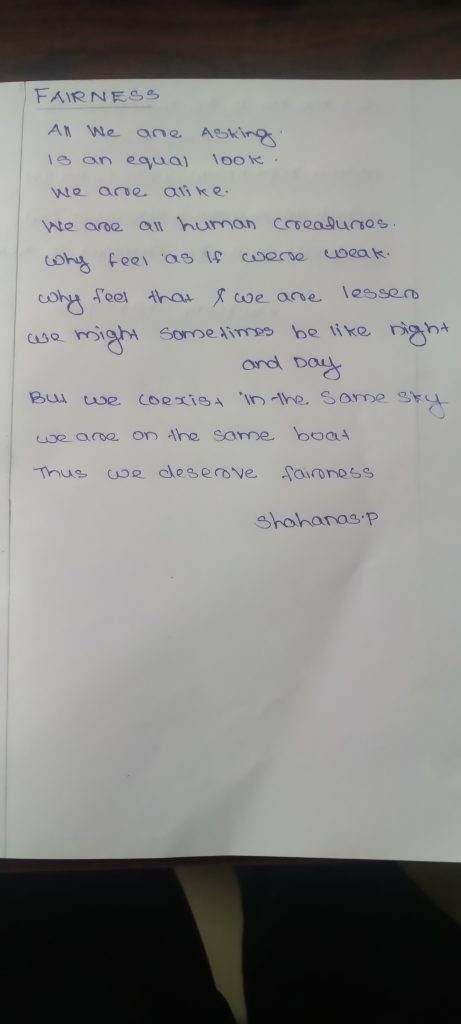 FAIRNESS
All We are Asking.
Is an equal look.
We are alike.
We are all human creatures.
Why feel as If were weak.
Why feel that we are lesser
We might sometimes be like night
and Day
But we coexist in the same sky
We are on the same boat
Thus we deserve fairness
Shahanas.P